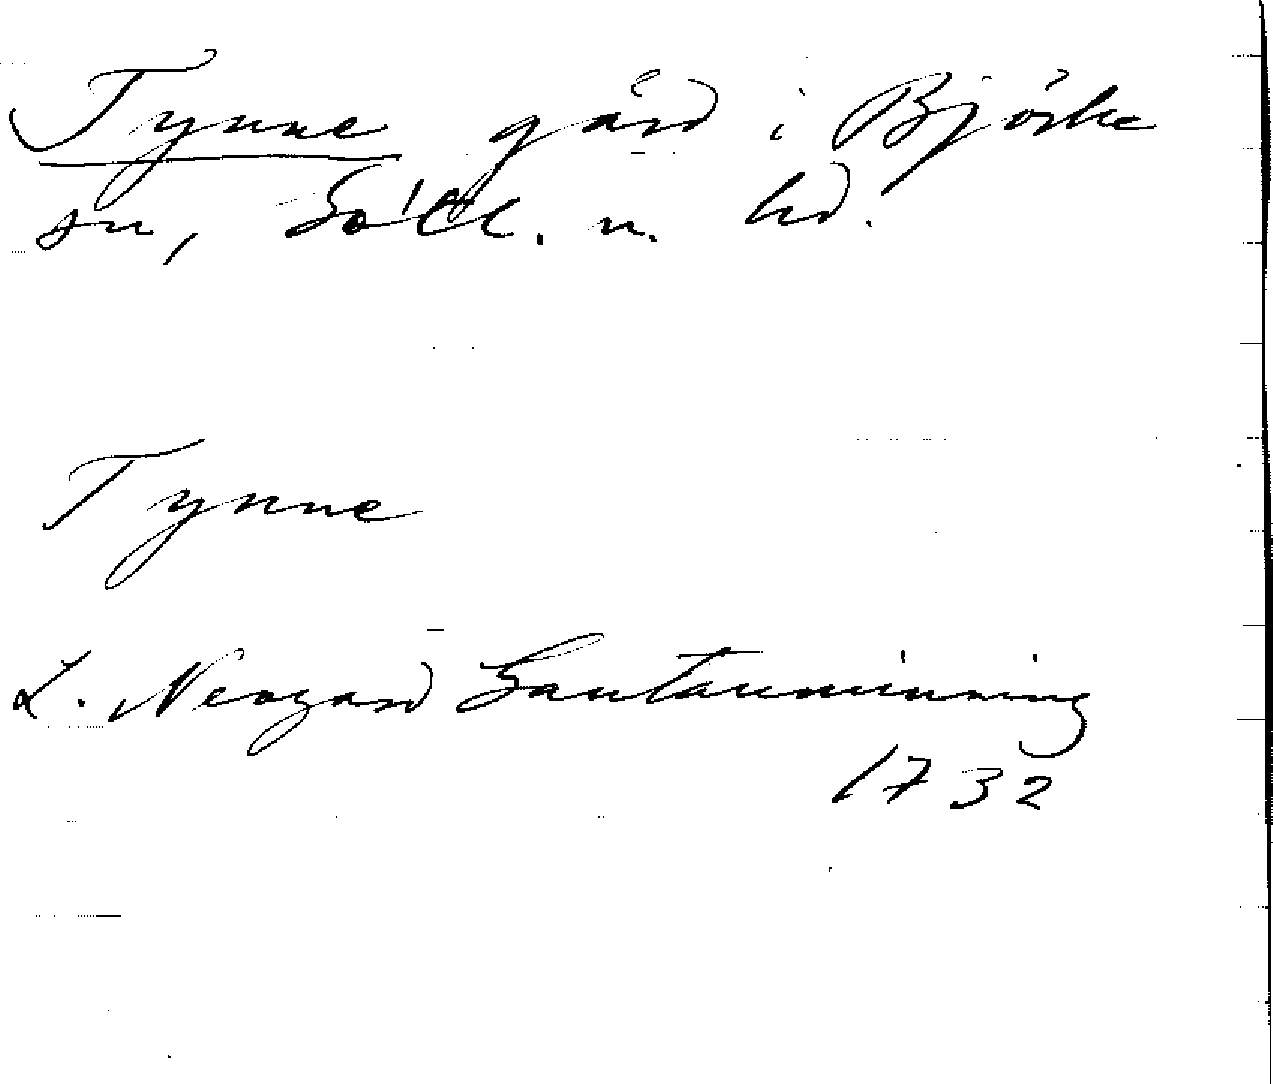 Tynne gård i Björke
sn, Gotl. n. hd.
Tynne
L. Neogard Gautauminning
1732